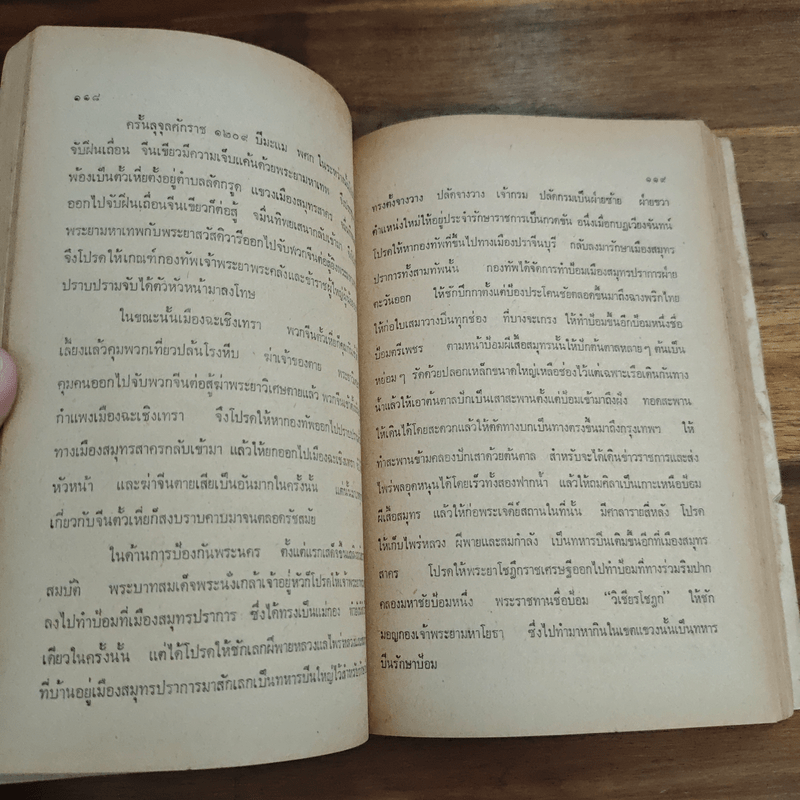 ๑๑๘
ครั้นลุจุลศักราช ๑๒๐๙ ปีมะแม นพศก ในระหว่าง
จับฝิ่นเถื่อน จีนเขียวมีความเจ็บแค้นด้วยพระยามหาเทพ
พ้องเป็นตั้วเหี่ยตั้งอยู่ตำบลลัดกรูด แขวงเมืองสมุทรสาคร
ออกไปจับฝิ่นเถื่อนจีนเขียวก็ต่อสู้ จมื่นทิพเสนากลับเข้ามา
พระยามหาเทพกับพระยาสวัสดิวารีออกไปจับพวกจีนต่อสู้
จึงโปรดให้เกณฑ์กองทัพเจ้าพระยาพระคลังและข้าราชผู้ใหญ่ผู้น้อย
ปราบปรามจับได้ตัวหัวหน้ามาลงโทษ
ในขณะนั้นเมืองฉะเชิงเทรา พวกจีนตั้วเหี่ย
เลี้ยงแล้วคุมพวกเที่ยวปล้นโรงหีบ ฆ่าเจ้าของตาย
คุมคนออกไปจับพวกจีนต่อสู้ฆ่าพระยาวิเศษตายแล้ว พวกจีน
กำแพงเมืองฉะเชิงเทรา จึงโปรดให้หากองทัพออกไป
ทางเมืองสมุทรสาครกลับเข้ามา แล้วให้ยกออกไปเมืองฉะเชิงเทรา
หัวหน้า และฆ่าจีนตายเสียเป็นอันมากในครั้งนั้น
เกี่ยวกับจีนตั้วเหี่ยก็สงบราบคาบมาจนตลอดรัชสมัย
ในด้านการป้องกันพระนคร ตั้งแต่แรกเสด็จขึ้น
สมบัติ พระบาทสมเด็จพระนั่งเกล้าเจ้าอยู่หัวก็โปรดให้เจ้าพระยา
ลงไปทำป้อมที่เมืองสมุทรปราการ ซึ่งได้ทรงเป็นแม่กอง
เดียวในครั้งนั้น แต่ได้โปรดให้ชักเลกผีพายหลวงแลไพร่หลวง
ที่บ้านอยู่เมืองสมุทรปราการมาสักเลกเป็นทหารปืนใหญ่ไว้สำหรับ
๑๑๙
ทรงตั้งจางวาง ปลัดจางวาง เจ้ากรม ปลัดกรมเป็นฝ่ายซ้าย ฝ่ายขวา
ตำแหน่งใหม่ให้อยู่ประจำรักษาราชการเป็นกวดขัน อนึ่งเมื่อกบฏเวียงจันทน์
โปรดให้หากองทัพที่ขึ้นไปทางเมืองปราจีนบุรี กลับลงมารักษาเมืองสมุท
ปราการทั้งสามทัพนั้น กองทัพได้จัดการทำป้อมเมืองสมุทรปราการฝ่าย
ตะวันออก ให้ชักปีกกาตั้งแต่ป้องประโคนชัยตลอดขึ้นมาถึงฉางพริกไทย
ให้ก่อใบเสมาวางปืนทุกช่อง ที่บางจะเกรง ให้ทำป้อมขึ้นอีกป้อมหนึ่งชื่อ
ป้อมตรีเพชร ตามหน้าป้อมผีเสื้อสมุทรนั้นให้ปักต้นตาลหลายๆ ต้นเป็น
หย่อมๆ รัดด้วยปลอกเหล็กขนาดใหญ่เหลือช่องไว้แต่เฉพาะเรือเดินกันทาง
น้ำแล้วให้เอาต้นตาลปักเป็นเสาสะพานตั้งแต่ป้อมเข้ามาถึงฝั่ง ทอดสะพาน
ให้เดินได้โดยสะดวกแล้วให้ตัดทางบกเป็นทางตรงขึ้นมาถึงกรุงเทพฯ ให้
ทำสะพานข้ามคลองปักเสาด้วยต้นตาล สำหรับจะได้เดินข่าวราชการและส่ง
ไพร่พลอุดหนุนได้โดยเร็วทั้งสองฟากน้ำ แล้วให้ถมศิลาเป็นเกาะเหนือป้อม
ผีเสื้อสมุทร แล้วให้ก่อพระเจดีย์สถานในที่นั้น มีศาลารายสี่หลัง โปรด
ให้เก็บไพร่หลวง ผีพายและสมกำลัง เป็นทหารปืนเติมขึ้นอีกที่เมืองสมุทร
สาคร โปรดให้พระยาโชฎึกราชเศรษฐีออกไปทำป้อมที่ทางร่วมริมปาก
คลองมหาชัยป้อมหนึ่ง พระราชทานชื่อป้อม "วิเชียรโชฎก" ให้ชัก
มอญกองเจ้าพระยามหาโยธา ซึ่งไปทำมาหากินในเขตแขวงนั้นเป็นทหาร
ปืนรักษาป้อม